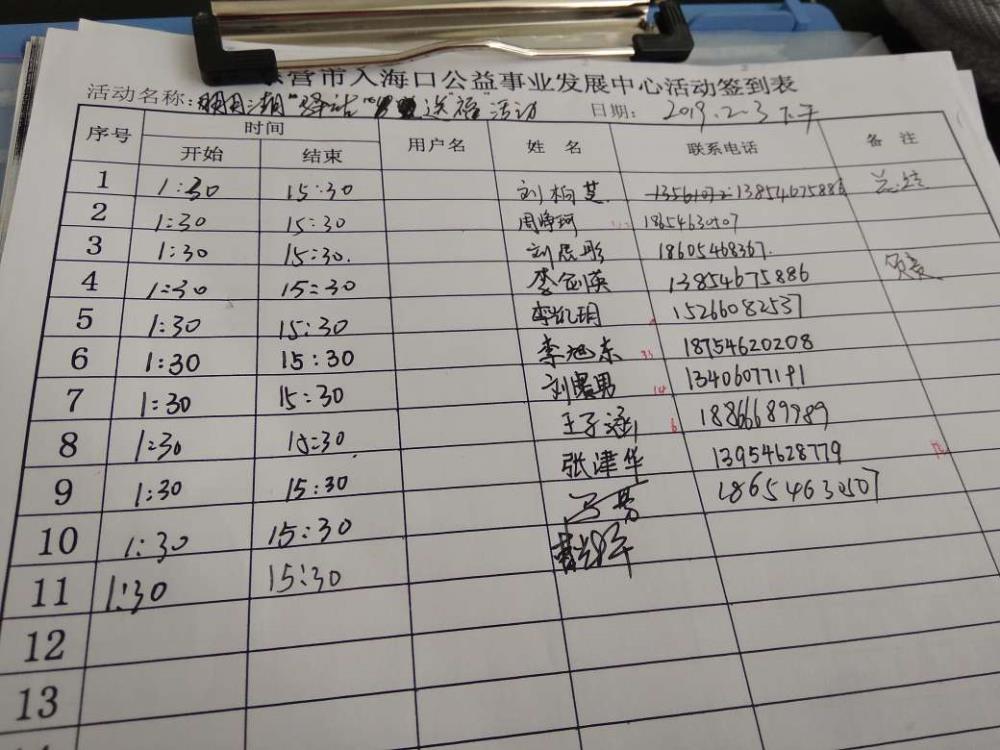 营市入海口公益事业发展中心活动签到表
活动名称: "驿站" 送"福"活动 日期: 2019.2.3 下午
序号 时间 用户名 姓名 联系电话 备注
开始 结束
1 1:30 15:30 刘柏芝 13854675886 总结
2 1:30 15:30 周峥珂 18654630507
3 1:30 15:30. 刘晨彤 18605468367.
4 1:30 15:30 李剑英 13854675886 负责
5 1:30 15:30 李凯玥 15266082537
6 1:30 15:30 李旭东 18954620208
7 1:30 15:30 刘男 13406077191
8 1:30 15:30 王子涵 18866689989
9 1:30 15:30 张津华 13954628779
10 1:30 15:30 18654630507
11 1:30 15:30
12
13